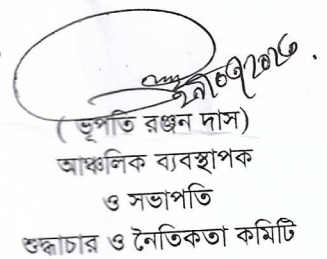 ( ভূপতি রঞ্জন দাস)
আঞ্চলিক ব্যবস্থাপক
ও সভাপতি
শুদ্ধাচার ও নৈতিকতা কমিটি